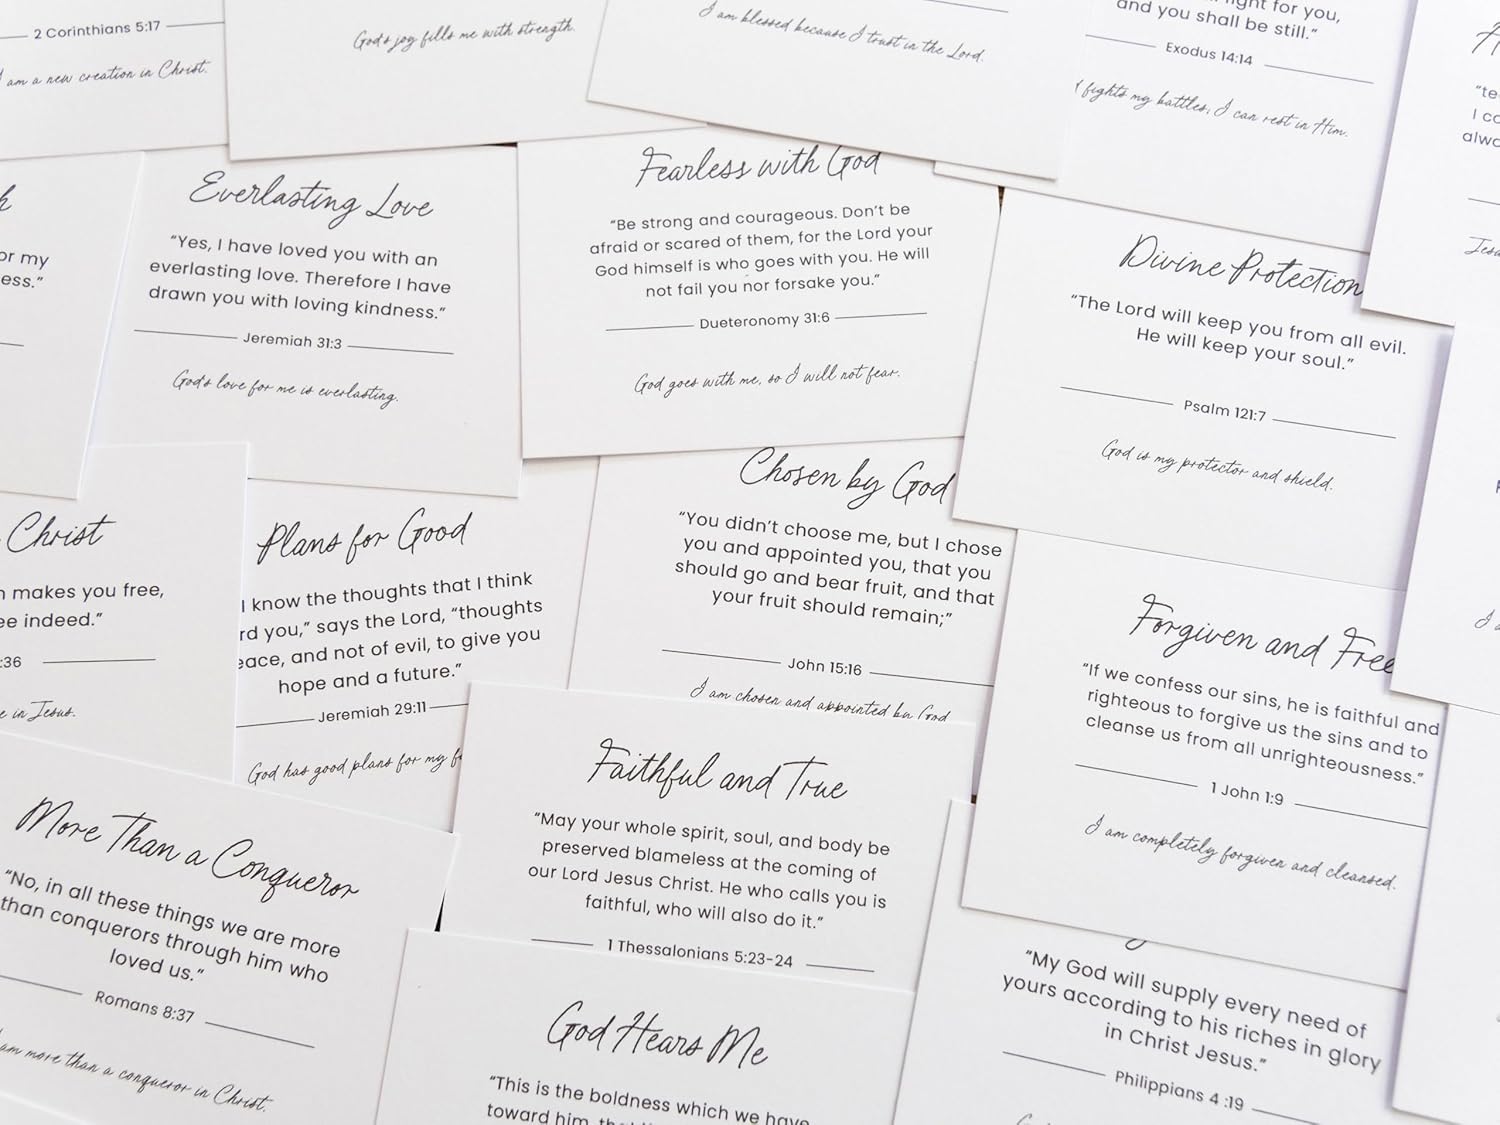 2 Corinthians 5:17
am a new creation in Christ.
God's joy fills me with strength.
I am blessed because I trust in the Lord.
fight for you,
and you shall be still."
Exodus 14:14
fights my battles; I can rest in Him.
"te
I co
alwa
Jesu
or my
ess."
Everlasting Love
"Yes, I have loved you with an
everlasting love. Therefore I have
drawn you with loving kindness."
Jeremiah 31:3
God's love for me is everlasting.
Fearless with God
"Be strong and courageous. Don't be
afraid or scared of them, for the Lord your
God himself is who goes with you. He will
not fail you nor forsake you."
Dueteronomy 31:6
God goes with me, so I will not fear.
Divine Protection
"The Lord will keep you from all evil.
He will keep your soul."
Psalm 121:7
God is my protector and shield.
Christ
makes you free,
ee indeed."
:36
e in Jesus.
Plans for Good
I know the thoughts that I think
rd you," says the Lord, "thoughts
eace, and not of evil, to give you
hope and a future."
Jeremiah 29:11
God has good plans for my f
Chosen by God
"You didn't choose me, but I chose
you and appointed you, that you
should go and bear fruit, and that
your fruit should remain;"
John 15:16
I am chosen and appointed by God
Forgiven and Free
"If we confess our sins, he is faithful and
righteous to forgive us the sins and to
cleanse us from all unrighteousness."
1 John 1:9
I am completely forgiven and cleansed.
More Than a Conqueror
"No, in all these things we are more
than conquerors through him who
loved us."
Romans 8:37
am more than a conqueror in Christ.
Faithful and True
"May your whole spirit, soul, and body be
preserved blameless at the coming of
our Lord Jesus Christ. He who calls you is
faithful, who will also do it."
1 Thessalonians 5:23-24
God Hears Me
"This is the boldness which we have
toward him, that
"My God will supply every need of
yours according to his riches in glory
in Christ Jesus."
Philippians 4 :19